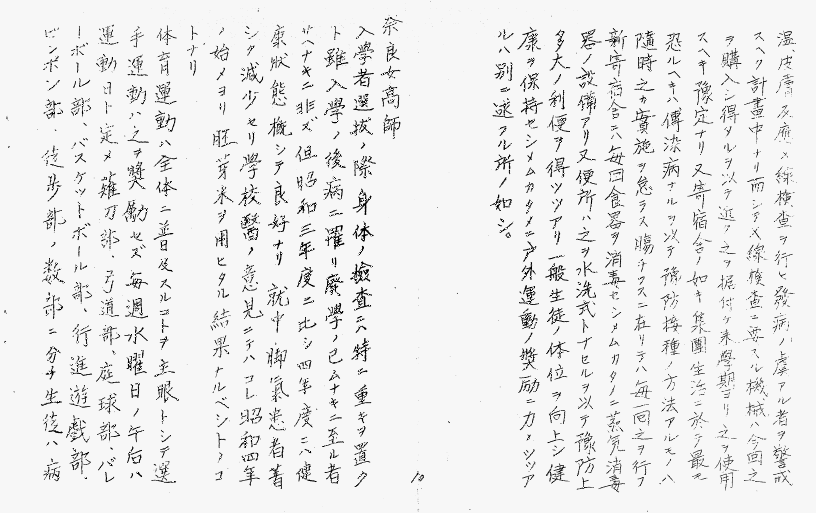 温、皮膚反應、X線検査ヲ行ヒ發病ノ虞アル者ヲ警戒
スヘク計畫中ナリ而シテX線検査ニ要スル機械ハ今回之
ヲ購入シ得タルヲ以テ近ク之ヲ据付ケ来學期ヨリ之ヲ使用
スヘキ豫定ナリ又寄宿舎ノ如キ集團生活ニ於テ最モ
恐ルヘキハ傳染病ナルヲ以テ豫防接種ノ方法アルモノハ
隨時之カ實施ヲ怠ラス腸チフスニ在リテハ毎一回之ヲ行フ
新寄宿舎ニハ毎回食器ヲ消毒セシメムカタメニ蒸気消毒
器ノ設備アリ又便所ハ之ヲ水洗式トナセルヲ以テ豫防上
多大ノ利便ヲ得ツツアリ一般生徒ノ体位ヲ向上シ健
康ヲ保持セシメムカタメニ戸外運動ノ奨励ニ力メツツア
ルハ別ニ述フル所ノ如シ。
10
奈良女高師
入學者選拔ノ際身体ノ檢査ニハ特ニ重キヲ置ク
ト雖入學ノ後病ニ罹リ廢學ノ已ムナキニ至ル者
サヘナキニ非ズ但昭和三年度ニ比シ四年度ニハ健
康狀態概シテ良好ナリ就中脚氣患者著
シク減少セリ學校醫ノ意見ニテハコレ昭和四年
ノ始メヨリ胚芽米ヲ用ヒタル結果ナルベシトノコ
トナリ
体育運動ハ全体ニ普及スルコトヲ主眼トシテ選
手運動ハ之ヲ奬勵セズ毎週水曜日ノ午后ハ
運動日ト定メ薙刀部、弓道部、庭球部、バレ
ーボール部、バスケットボール部、行進遊戲部、
ピンポン部、徒歩部ノ数部ニ分チ生徒ハ病